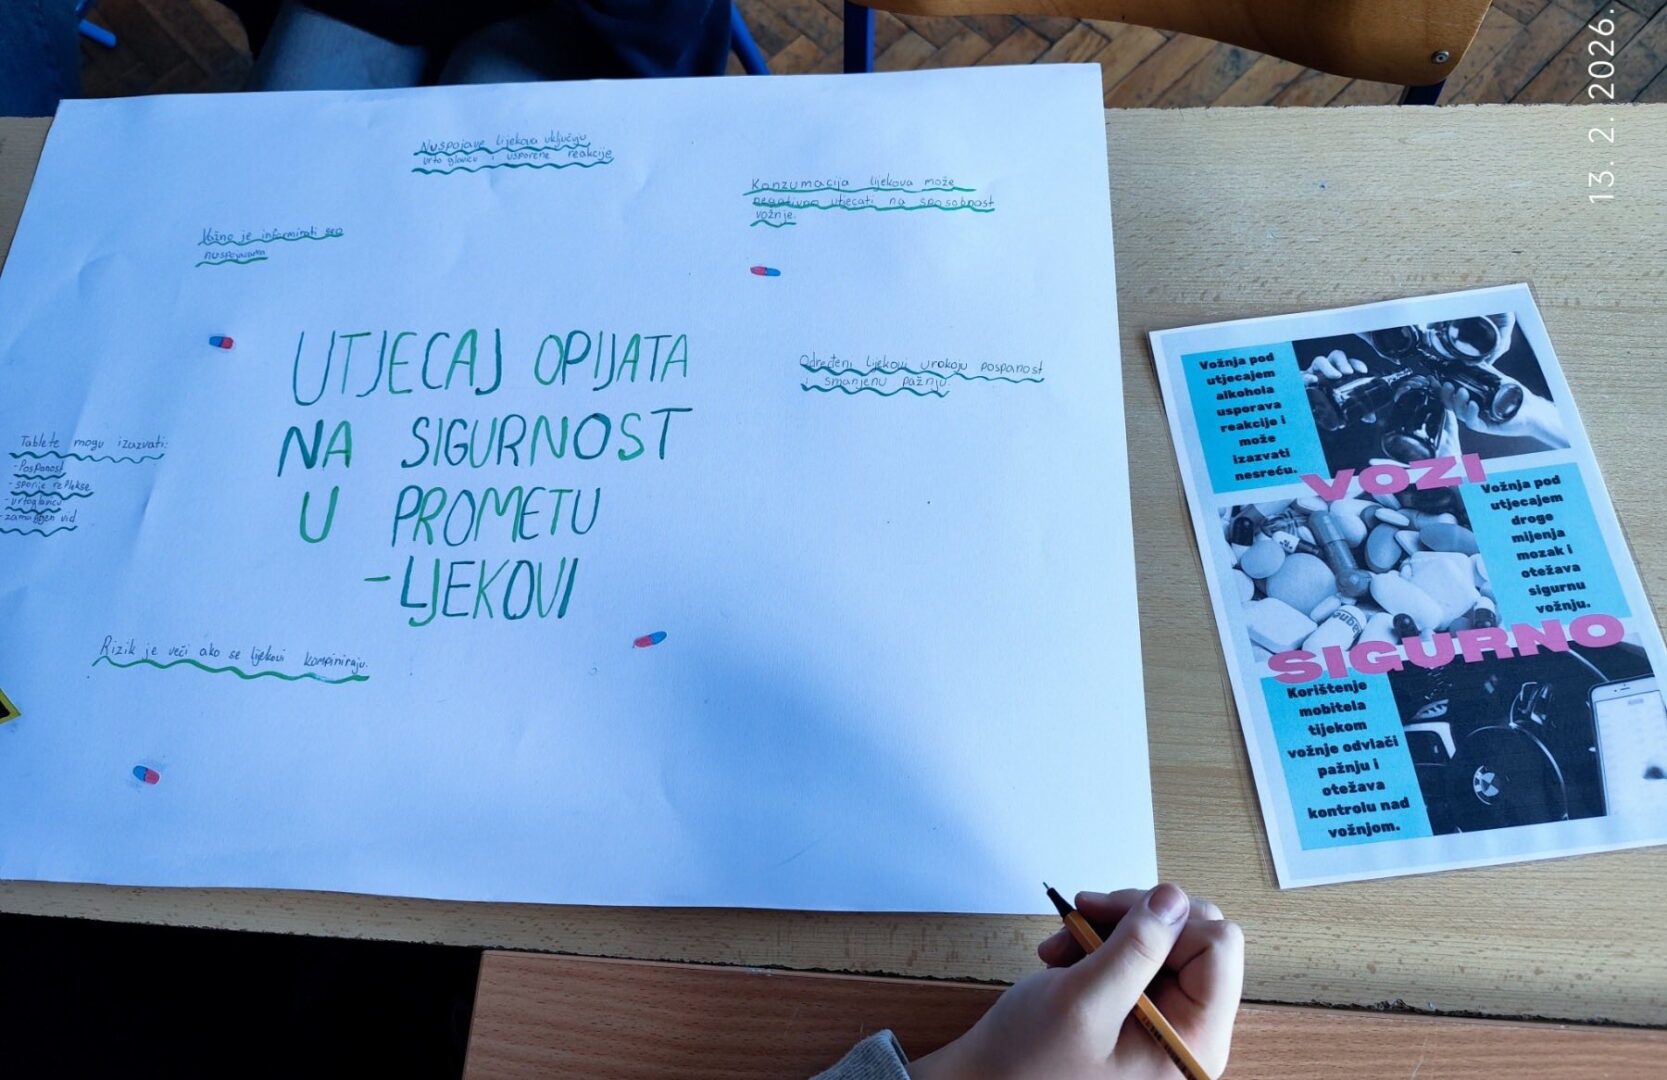 Nuspojave lijekova uključuju
vrtoglavicu i usporene reakcije
Konzumacija lijekova može
negativno utjecati na sposobnost
vožnje.
Važno je informirati se o
nuspojavama
UTJECAJ OPIJATA
NA SIGURNOST
U PROMETU
-LJEKOVI
Određeni lijekovi urokoju pospanost
i smanjenu pažnju.
Tablete mogu izazvati:
-Pospanost
-sporije reflekse
-vrtoglavicu
-zamagljen vid
Rizik je veči ako se lijekovi kompiniraju.
Vožnja pod
utjecajem
alkohola
usporava
reakcije i
može
izazvati
nesreću.
VOZI
Vožnja pod
utjecajem
droge
mijenja
mozak i
otežava
sigurnu
vožnju.
SIGURNO
Korištenje
mobitela
tijekom
vožnje odvlači
pažnju i
otežava
kontrolu nad
vožnjom.
13.2.2026.